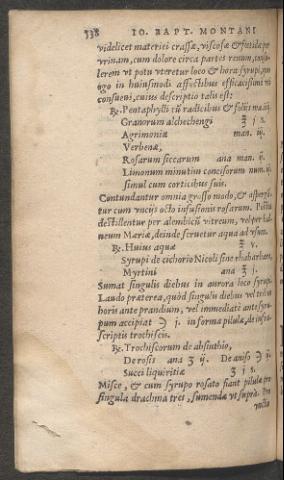 338 IO. BAPT. MONTANI
videlicet materiei crassæ, viscosæ & fœtidæ per
vrinam, cum dolore circa partes renum,
lerem vt potu vteretur loco & hora syrupi,
ego in huiusmodi affectibus efficacissimi
consueui, cuius descriptio talis est:
℞. Pentaphylli cũ radicibus & folijs ma. iij.
Granorum alchechengi ℥ j s.
Agrimoniæ man. iij.
Verbenæ,
Rosarum siccarum ana man. ij.
Limonum minutim concisorum num. iij
simul cum corticibus suis.
Contundantur omnia grosso modo, &
tur cum vncijs octo infusionis rosarum.
destillentur per alembicũ vitreum, vel per bal
neum Mariæ, deinde seruetur aqua ad vsum.
℞. Huius aquæ ℥ v.
Syrupi de cichorio Nicoli sine rhabarbaro,
Myrtini ana ℥ j.
Sumat singulis diebus in aurora loco syrupi.
Laudo præterea, quòd singulis diebus vel
horis ante prandium, vel immediatè ante
pum accipiat ℈ j. in forma pilulæ, de infra
scriptis trochiscis.
℞. Trochiscorum de absinthio,
De rosis ana ʒ ij. De aniso ℈ ij.
Succi liquiritiæ ʒ j s.
Misce, & cum syrupo rosato fiant pilulæ pro
singula drachma tres, sumendæ vt suprà.